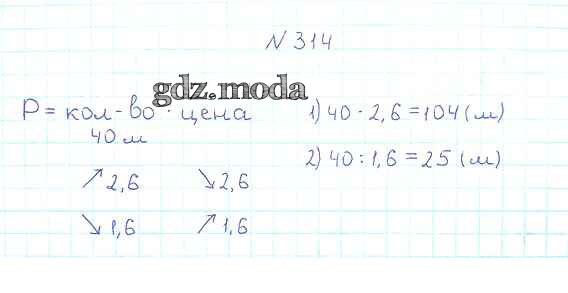 N 314
gdz.moda
P = кол-во · цена
40 м
↗ 2,6 ↘ 2,6
↘ 1,6 ↗ 1,6
1) 40 · 2,6 = 104 (м)
2) 40 : 1,6 = 25 (м)